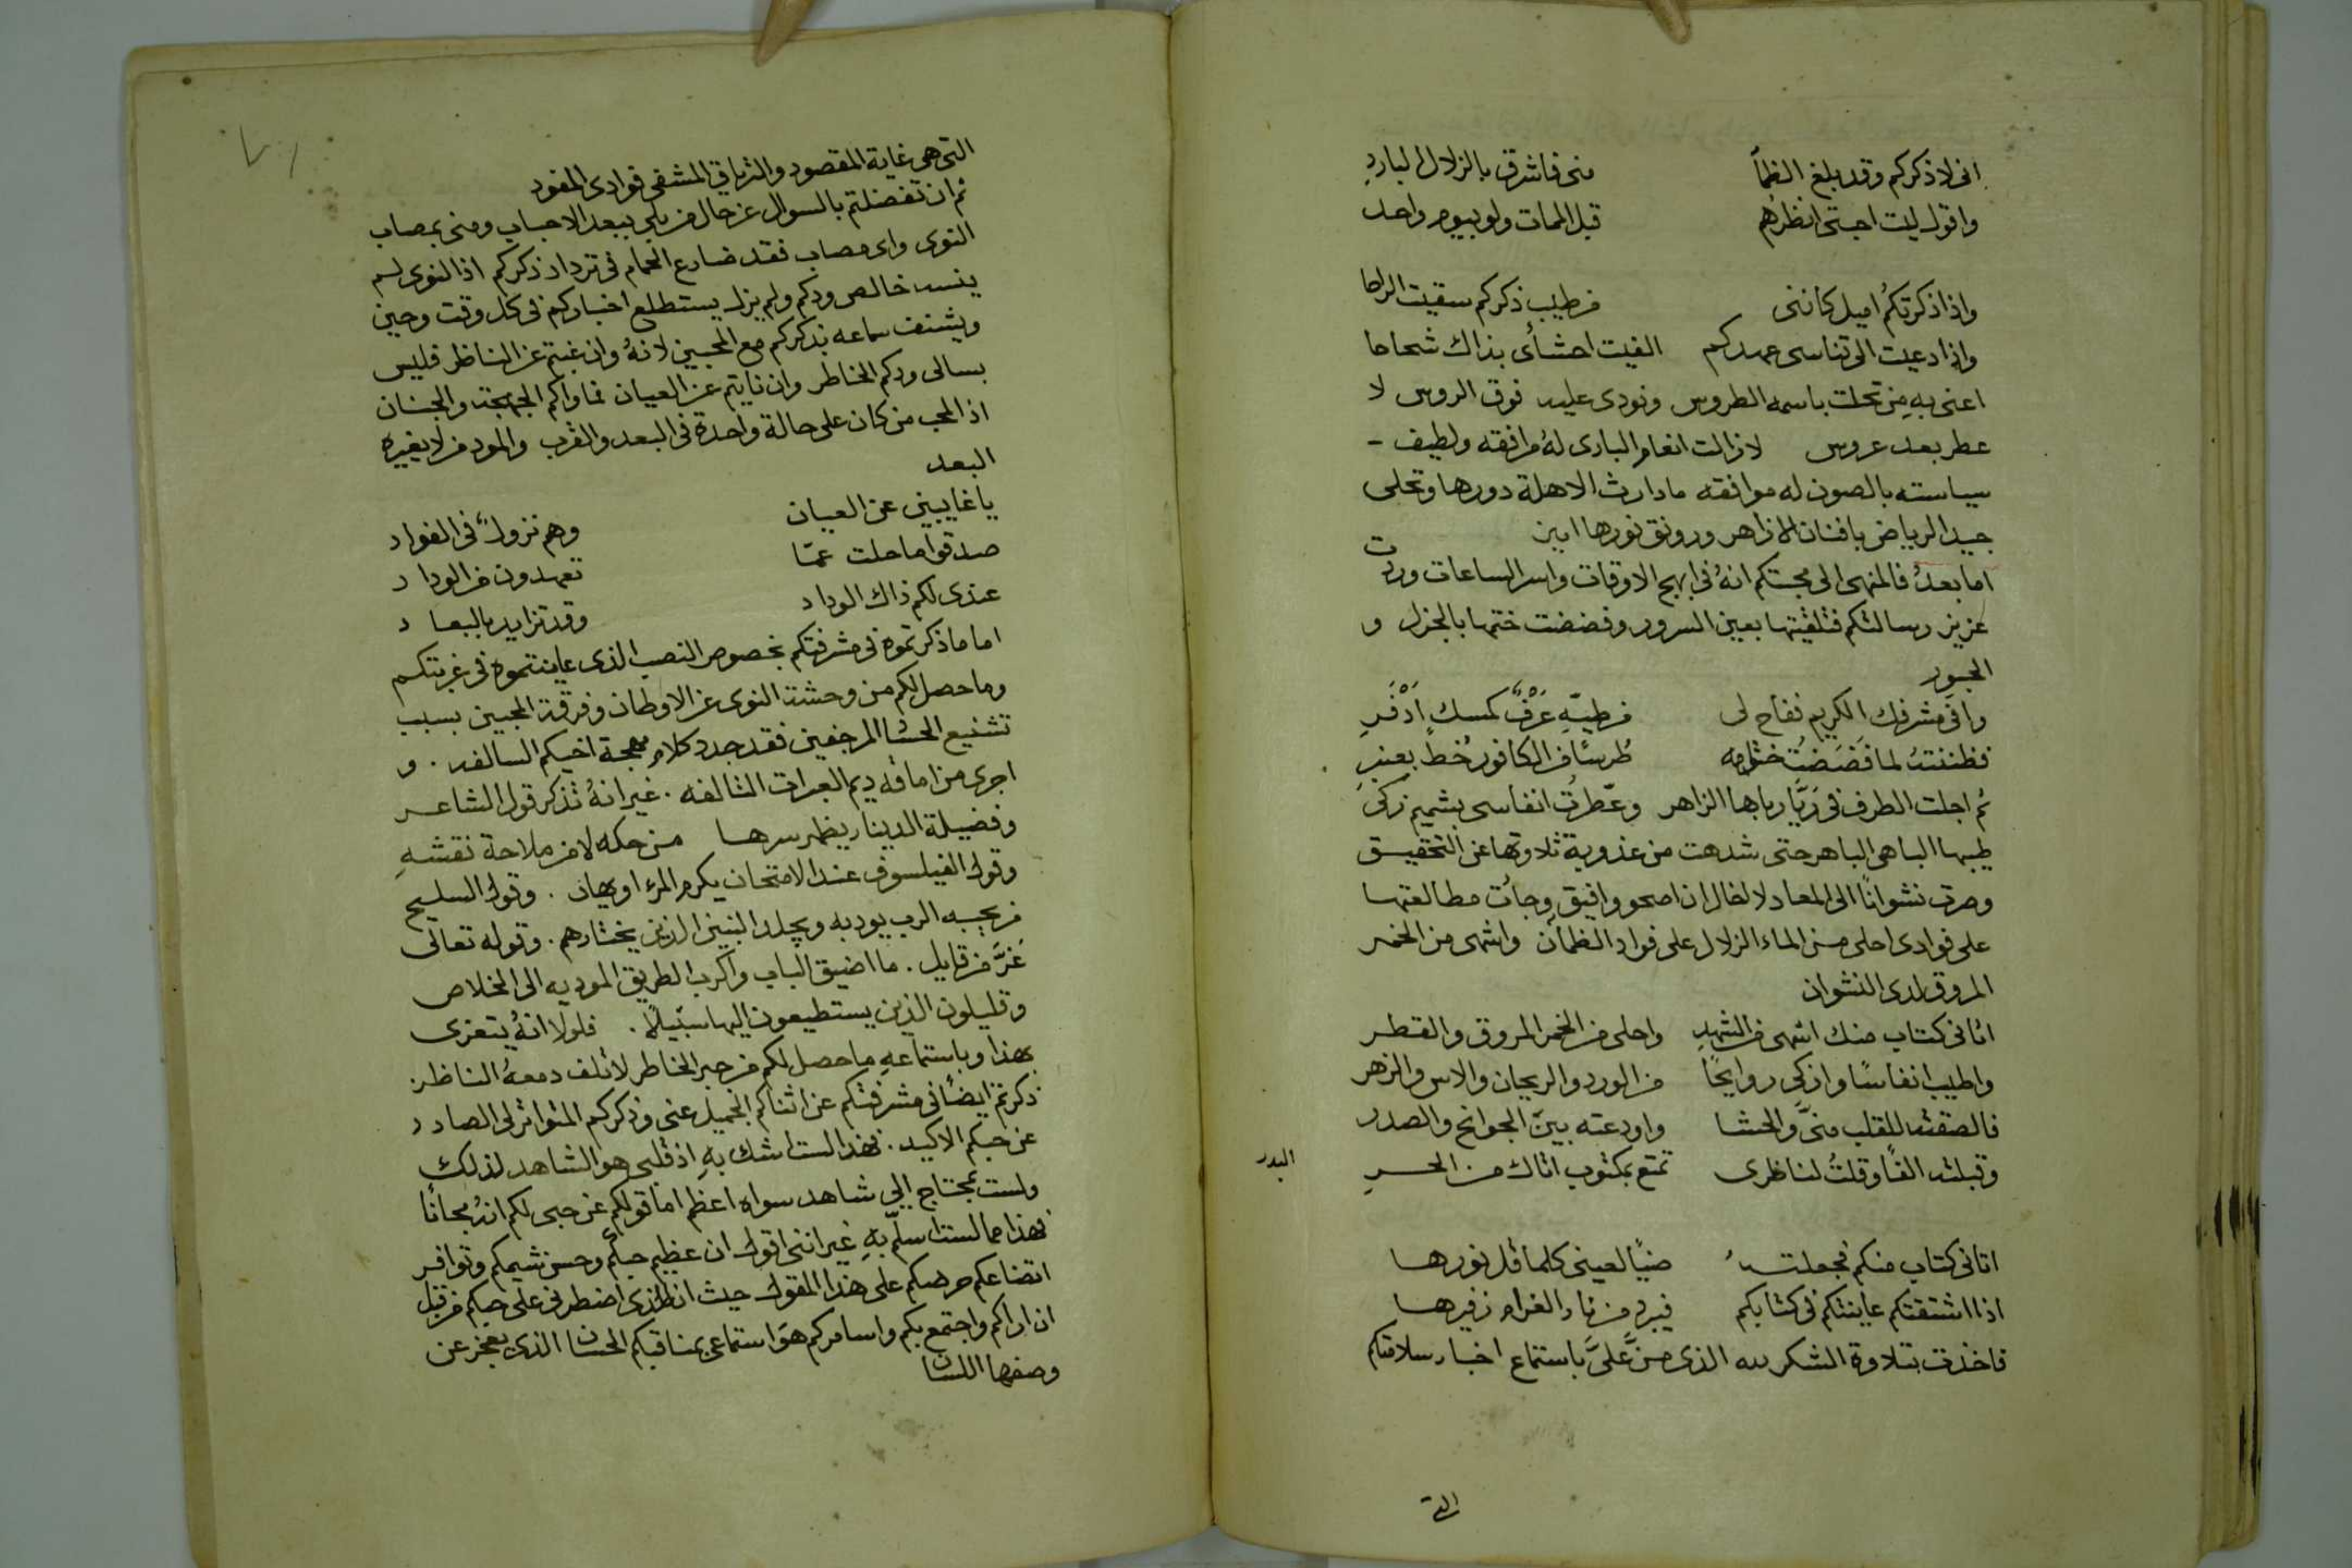 انى لاذكركم وقد بلغ الظمأ منى فاشرق بالزلال البارد
واقول ليت احبتى انظرهم قبل الممات ولو بيوم واحد
واذا ذكرتكم اميل كاننى من طيب ذكركم سقيت الراحا
واذا دعيت الى تناسى عهدكم الفيت احشأى بذاك شحاحا
اعنى به من تحلت باسمه الطروس ونودى عليه فوق الروس لا
عطر بعد عروس لا زالت انعام البارى له مرافقه ولطيف
سياسته بالصون له موافقه ما دارت الاهلة دورها وتحلى
جيد الرياض بافنان الازاهر ورونق نورها امين
اما بعد فالمنهى الى محبتكم انه فى ابهج الاوقات واسر الساعات وردت
عزيز رسالتكم فتلقيتها بعين السرور وفضضت ختمها بالجزل و
الحبور
وافى مشرفك الكريم ففاح لى من طيبه عَرْفٌ كمسك اَذْفَرِ
فظننته لما فَضَضْتُ ختامه طرسًا من الكافور خُطَّ بعنبرِ
ثم اجلت الطرف فى رَيَّا رباها الزاهر وعطرت انفاسى بشميم زكى
طيبها الباهى الباهر حتى شدهت من عذوبة تلاوتها عن التحقيق
وصرت نشوانًا الى المعاد لا اخال ان اصحو وافيق وجأت مطالعتها
على فوادى احلى من الماء الزلال على فواد الظمأن واشهى من الخمر
المروق لدى النشوان
اتانى كتاب منك اشهى من الشهد واحلى من الخمر المروق والقطر
واطيب انفاسًا وازكى روايحًا من الورد والريحان والاس والزهر
فالصقته للقلب منىَّ والحشا واودعته بين الجوانح والصدر
وقبلته الفًا وقلتُ لناظرى تمتع بمكتوب اتاك من الحبرِ
البدر
اتانى كتاب منكم فجعلته ضيًا لعينى كلما قل نورها
اذا اشتقتكم عاينتكم فى كتابكم فيبرد من نار الغرام زفيرها
فاخذت بتلاوة الشكر لله الذى منَّ علىَّ باستماع اخبار سلامتكم
التى
التى هى غاية المقصود والترياق المشفى فوادى المفود
ثم ان تفضلتم بالسوال عن حال من بلى ببعد الاحباب ومنى بمصاب
النوى واى مصاب فقد ضارع الحمام فى ترداد ذكركم اذ النوى لم
ينسه خالص ودكم ولم يزل يستطلع اخباركم فى كل وقت وحين
ويشنف سماعه بذكركم مع المحبين لانه وان غبتم عن الناظر فليس
بسالى ودكم الخاطر وان نايتم عن العيان فماواكم المهجة والجنان
اذ المحب من كان على حالة واحدة فى البعد والقرب والمود من لا يغيره
البعد
يا غايبين عن العيان وهم نزولٌ فى الفواد
صدقوا ما حلت عمّا تعهدون من الوداد
عندى لكم ذاك الوداد وقد تزايد بالبعاد
اما ما ذكرتموه فى مشرفتكم بخصوص النصب الذى عاينتموه فى غربتكم
وما حصل لكم من وحشة النوى عن الاوطان وفرقة المحبين بسبب
تشنيع المرجفين فقد جدد كلام مهجة اخيكم السالفه . و
اجرى من اماقه ديم العبرات التالفه . غير انه تذكر قول الشاعر
وفضيلة الدينار يظهر سرها من حكه لا من ملاحة نقشهِ
وقول الفيلسوف عند الامتحان يكرم المرء او يهان . وقول السليح
من يحبه الرب يودبه ويجلد البنين الذين يختارهم . وقوله تعالى
عَزَّ من قايل . ما اضيق الباب واكرب الطريق الموديه الى الخلاص
وقليلون الذين يستطيعون اليها سبيلًا . فلولا انه يتعزى
بهذا وباستماعهِ ما حصل لكم من جبر الخاطر لاتلف دمعهُ الناظر.
ذكرتم ايضًا فى مشرفتكم عن اثناكم الجميل عنى وذكركم المتواتر لى الصادر
عن حبكم الاكيد . فهذا لست اشك بهِ اذ قلبى هو الشاهد لذلك
ولست بمحتاج الى شاهد سواه اعظم اما قولكم عن حبى لكم انه مجانًا
فهذا مما لست اسلّم بهِ غير اننى اقول ان عظيم حبكم وحسن شيمكم وتوافر
اتضاعكم حرضكم على هذا المقول حيث ان الذى اضطرنى على حبكم من قبل
ان اراكم واجتمع بكم واسامركم هو استماعى بمناقبكم الحسان الذى يعجز عن
وصفها اللسان